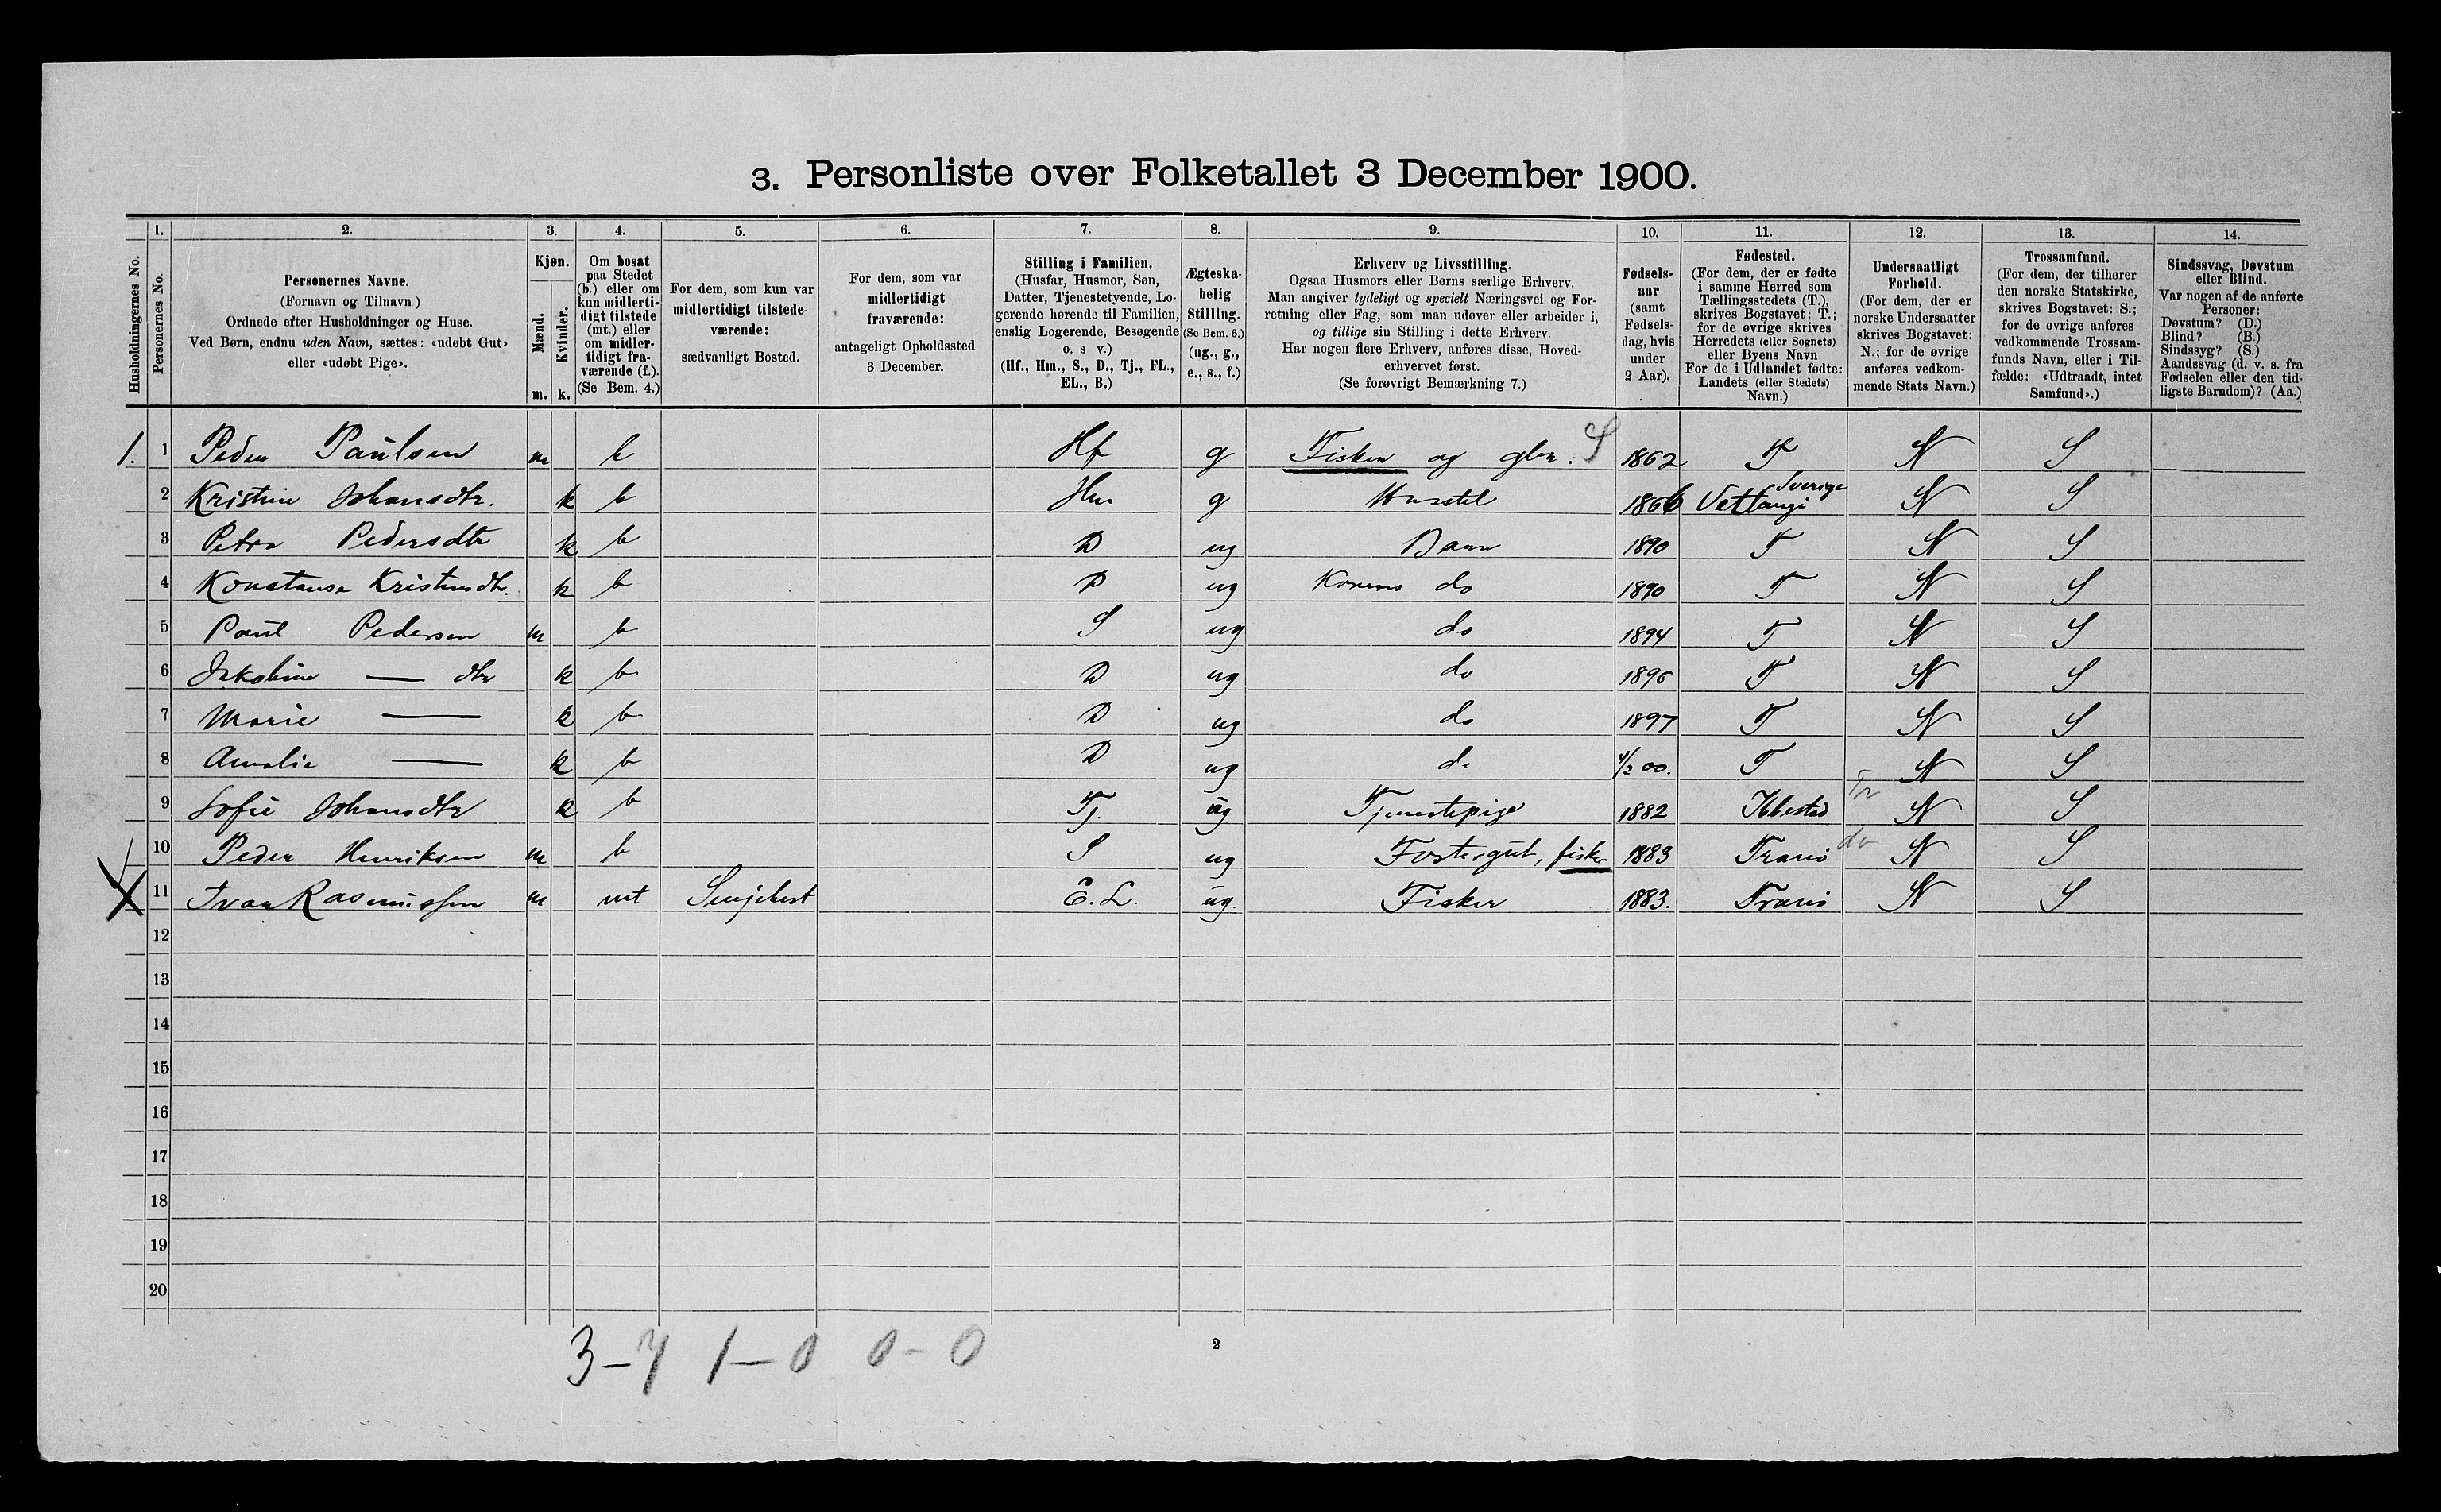 3. Personliste over Folketallet 3 December 1900.
1. 2. 3. 4. 5. 6. 7. 8. 9. 10. 11. 12. 13. 14.
Husholdningernes No.
Personernes No.
Personernes Navne.
(Fornavn og Tilnavn)
Ordnede efter Husholdninger og Huse.
Ved Børn, endnu uden Navn, sættes: «udøbt Gut»
eller «udøbt Pige».
Kjøn.
Mænd.
Kvinder.
m. k.
Om bosat
paa Stedet
(b.) eller om
kun midlerti-
digt tilstede
(mt.) eller
om midler-
tidigt fra-
værende (f.).
(Se Bem. 4.)
For dem, som kun var
midlertidigt tilstede-
værende:
sædvanligt Bosted.
For dem, som var
midlertidigt
fraværende:
antageligt Opholdssted
3 December.
Stilling i Familien.
(Husfar, Husmor, Søn,
Datter, Tjenestetyende, Lo-
gerende hørende til Familien,
enslig Logerende, Besøgende
o. s v.)
(Hf., Hm., S., D., Tj., FL.,
EL., B.)
Ægteska-
belig
Stilling.
(Se Bem. 6.)
(ug., g.,
e., s., f.)
Erhverv og Livsstilling.
Ogsaa Husmors eller Børns særlige Erhverv.
Man angiver tydeligt og specielt Næringsvei og For-
retning eller Fag, som man udøver eller arbeider i,
og tillige sin Stilling i dette Erhverv.
Har nogen flere Erhverv, anføres disse, Hoved-
erhvervet først.
(Se forøvrigt Bemærkning 7.)
Fødsels-
aar
(samt
Fødsels-
dag, hvis
under
2 Aar).
Fødested.
(For dem, der er fødte
i samme Herred som
Tællingsstedets (T.),
skrives Bogstavet: T.;
for de øvrige skrives
Herredets (eller Sognets)
eller Byens Navn.
For de i Udlandet fødte:
Landets (eller Stedets)
Navn.)
Undersaatligt
Forhold.
(For dem, der er
norske Undersaatter
skrives Bogstavet:
N.; for de øvrige
anføres vedkom-
mende Stats Navn.)
Trossamfund.
(For dem, der tilhører
den norske Statskirke,
skrives Bogstavet: S.;
for de øvrige anføres
vedkommende Trossam-
funds Navn, eller i Til-
fælde: «Udtraadt, intet
Samfund».)
Sindssvag, Døvstum
eller Blind.
Var nogen af de anførte
Personer:
Døvstum? (D.)
Blind? (B.)
Sindssyg? (S.)
Aandssvag (d. v. s. fra
Fødselen eller den tid-
ligste Barndom)? (Aa.)
1. 1 Peder Paulsen m b Hf g Fisker og S 1862 T N S
2 Kristine Johansdtr. k b Hm g Husstel 1866 Sverige N S
3 Petra Pedersdtr k b D ug Barn 1890 T N S
4 Konstanse Kristensdtr. k b D ug Konens do 1890 T N S
5 Paul Pedersen m b S ug do 1894 T N S
6 Jakobine — dtr k b D ug do 1896 T N S
7 Marie — k b D ug do 1897 T N S
8 Amalie — k b D ug do 4/2 00. T N S
9 Sofie Johansdtr k b Tj. ug Tjenestepige 1882 Ibbestad Tr N S
10 Peder Henriksen m b S ug Fostergut, fisker 1883 Tranö do N S
X 11 Ivan Rasmussen m mt E.L. ug. Fisker 1883. Tranö N S
12
13
14
15
16
17
18
19
20
3-7 1-0 0-0
2